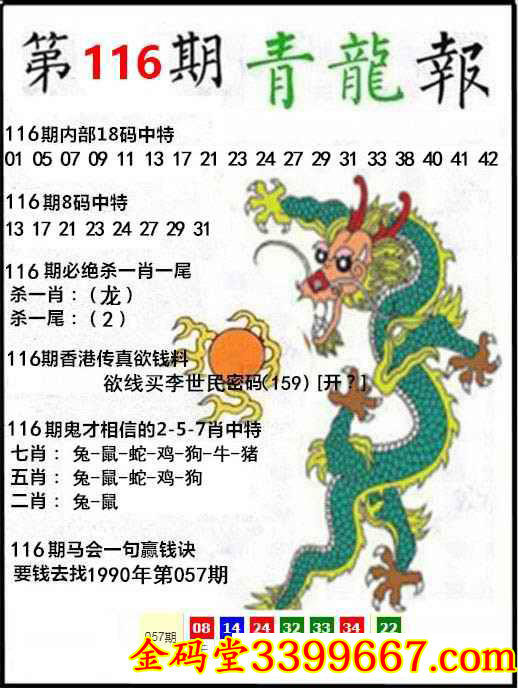 第116期青龍報
116期内部18码中特
01 05 07 09 11 13 17 21 23 24 27 29 31 33 38 40 41 42
116期8码中特
13 17 21 23 24 27 29 31
116期必绝杀一肖一尾
杀一肖：（龙）
杀一尾：（2）
116期香港传真欲钱料
欲线买李世民密码(159) [开？]
116期鬼才相信的2-5-7肖中特
七肖：兔-鼠-蛇-鸡-狗-牛-猪
五肖：兔-鼠-蛇-鸡-狗
二肖：兔-鼠
116期马会一句赢钱诀
要钱去找1990年第057期
057期 08 14 24 32 33 34 22
金码堂3399667.com